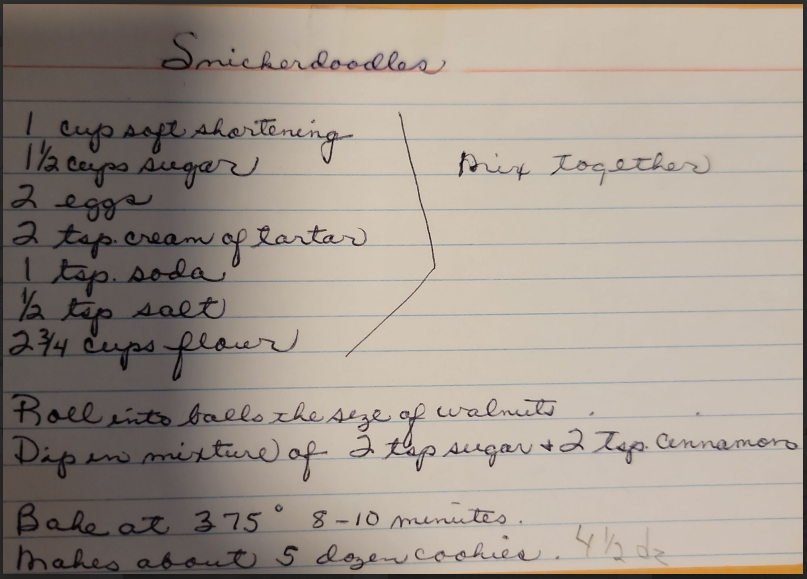 Snickerdoodles
1 cup soft shortening
1 1/2 cups sugar
Mix together
2 eggs
2 tsp. cream of tartar
1 tsp. soda
1/2 tsp salt
2 3/4 cups flour
Roll into balls the size of walnuts.
Dip in mixture of 2 tsp sugar + 2 tsp. cinnamon
Bake at 375° 8-10 minutes.
Makes about 5 dozen cookies. 4 1/2 dz